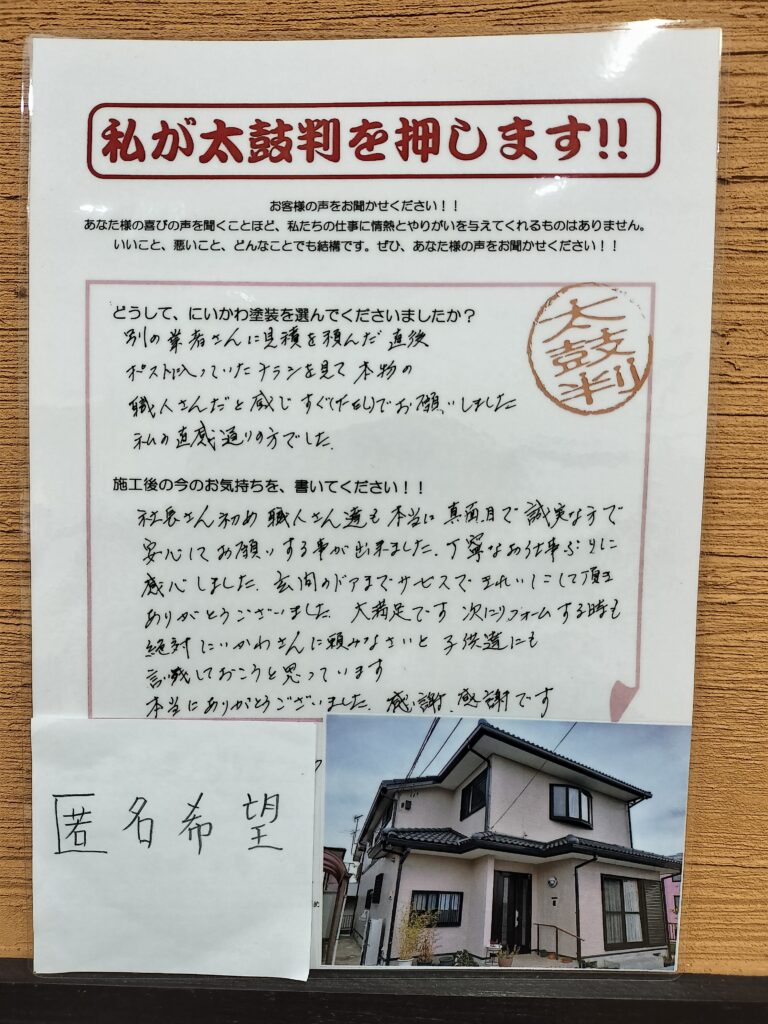 私が太鼓判を押します!!
お客様の声をお聞かせください！！
あなた様の喜びの声を聞くことほど、私たちの仕事に情熱とやりがいを与えてくれるものはありません。
いいこと、悪いこと、どんなことでも結構です。ぜひ、あなた様の声をお聞かせください！！
太鼓判
どうして、にいかわ塗装を選んでくださいましたか？
別の業者さんに見積を頼んだ直後
ポストに入っていたチラシを見て本物の
職人さんだと感じすぐにTELでお願いしました
私の直感通りの方でした.
施工後の今のお気持ちを、書いてください！！
社長さん初め職人さん達も本当に真面目で誠実な方で
安心してお願いする事が出来ました.丁寧なお仕事ぶりに
感心しました.玄関のドアまでサービスできれいにして頂き
ありがとうございました.大満足です 次にリフォームする時も
絶対にいかわさんに頼みなさいと子供達にも
言っておこうと思っています
本当にありがとうございました.感謝.感謝です
匿名希望